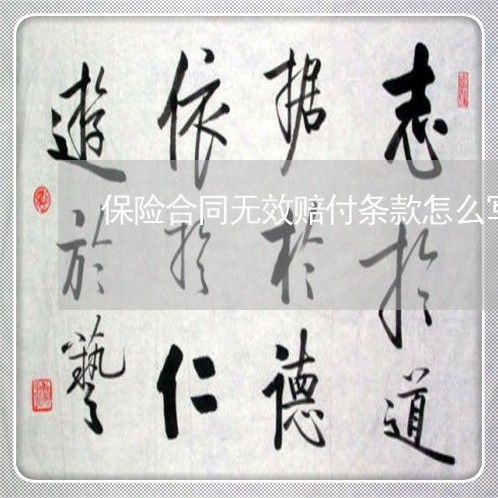 志扵道
据於德
依扵仁
遊於藝
保险合同无效赔付条款怎么写